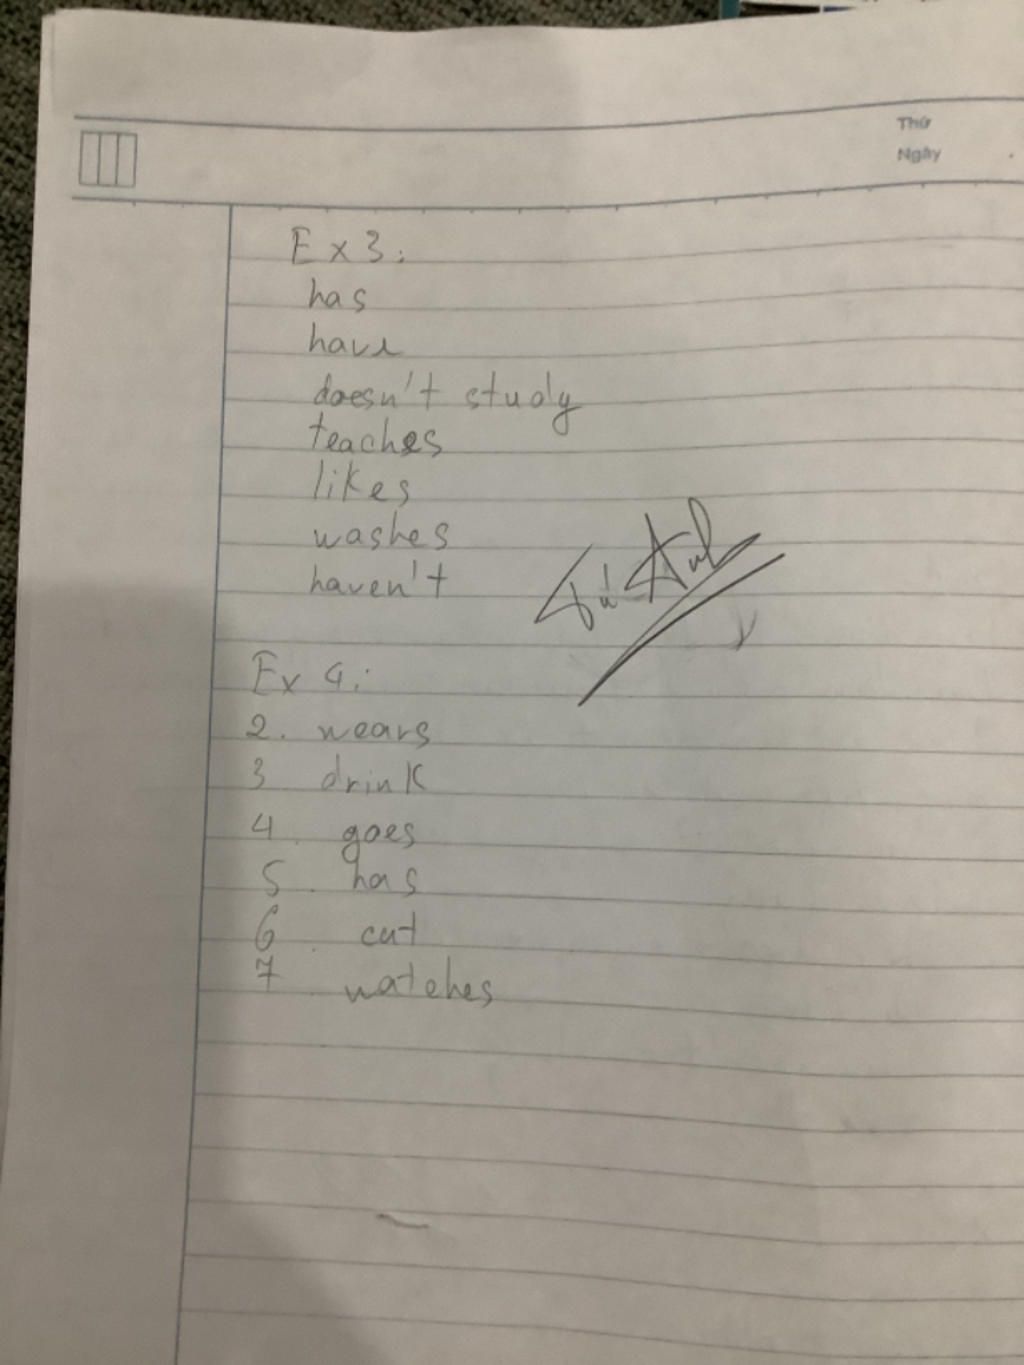 Thứ
Ngày
Ex 3:
has
have
doesn't study
teaches
likes
washes
haven't
Tú Anh
Ex 4:
2. wears
3 drink
4. goes
5. has
6. cut
7. watches